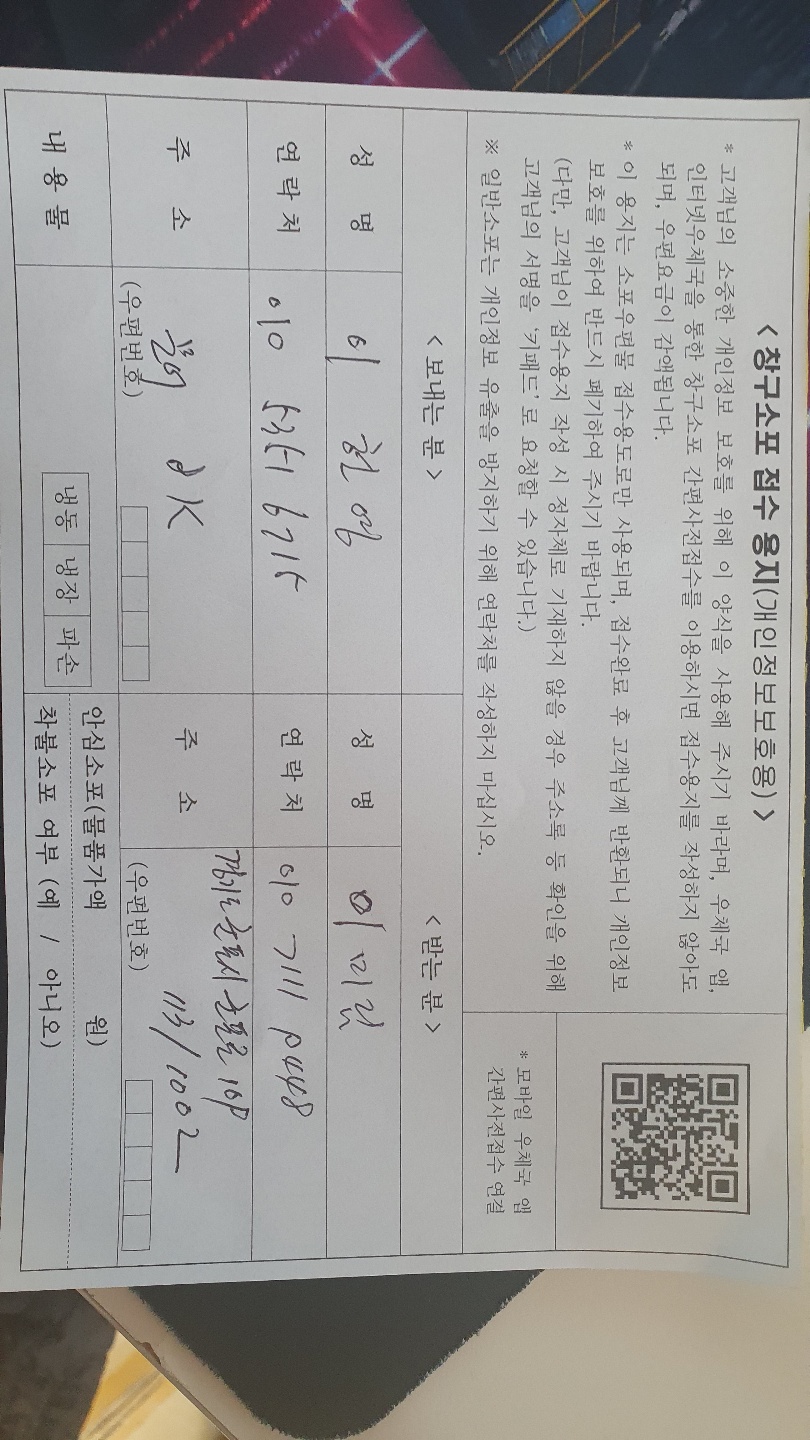 < 창구소포 접수 용지(개인정보보호용) >
* 고객님의 소중한 개인정보 보호를 위해 이 양식을 사용해 주시기 바라며, 우체국 앱,
인터넷우체국을 통한 창구소포 간편사전접수를 이용하시면 접수용지를 작성하지 않아도
되며, 우편요금이 감액됩니다.
* 이 용지는 소포우편물 접수용도로만 사용되며, 접수완료 후 고객님께 반환되니 개인정보
보호를 위하여 반드시 폐기하여 주시기 바랍니다.
(다만, 고객님이 접수용지 작성 시 정자체로 기재하지 않을 경우 주소록 등 확인을 위해
고객님의 서명을 '키패드'로 요청할 수 있습니다.)
※ 일반소포는 개인정보 유출을 방지하기 위해 연락처를 작성하지 마십시오.
* 모바일 우체국 앱
간편사전접수 연결
< 보내는 분 >
< 받는 분 >
성 명
이
성 명
이
연 락 처
010
6715
연 락 처
010 7111
주 소
(우편번호)
주 소
113/1002
(우편번호)
내 용 물
냉동 냉장 파손
안심소포(물품가액 원)
착불소포 여부 (예 / 아니오)